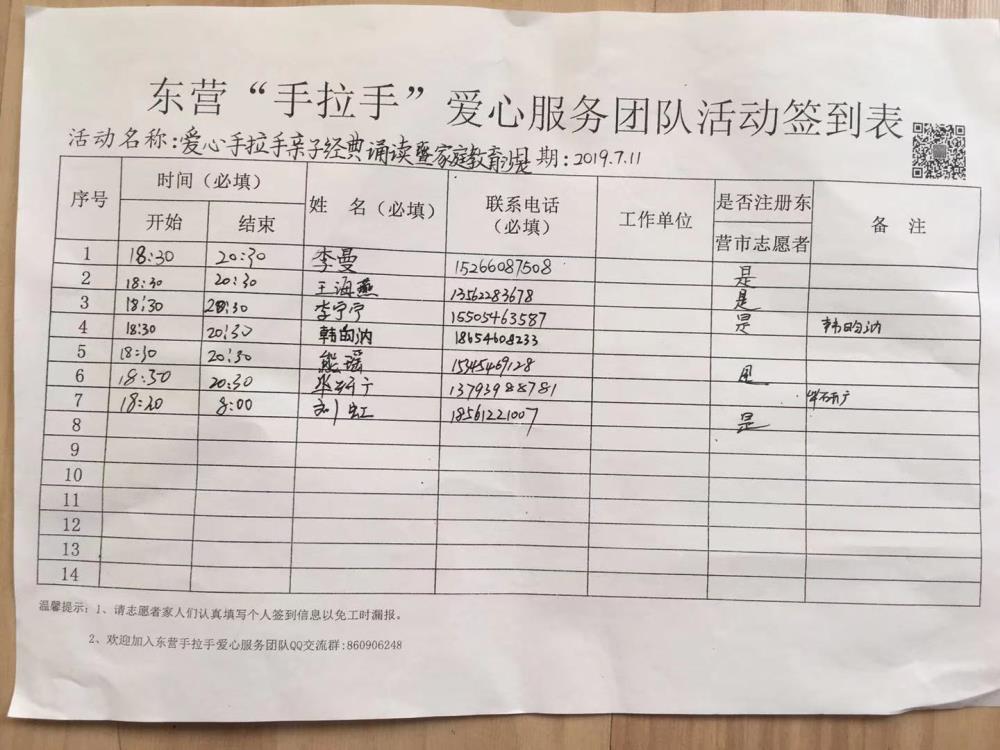 东营“手拉手”爱心服务团队活动签到表
活动名称:爱心手拉手亲子经典诵读暨家庭教育沙龙 日期:2019.7.11
序号 时间（必填） 姓 名（必填） 联系电话（必填） 工作单位 是否注册东营市志愿者 备 注
开始 结束
1 18:30 20:30 李曼 15266087508 是
2 18:30 20:30 王海燕 13562283678 是
3 18:30 20:30 李宁宁 15505463587 是
4 18:30 20:30 韩昀汭 18654608233 韩昀汭
5 18:30 20:30 熊瑶 15345469128
6 18:30 20:30 13793988781
7 18:20 8:00 刘虹 18561221007 是
8
9
10
11
12
13
14
温馨提示：1、请志愿者家人们认真填写个人签到信息以免工时漏报。
2、欢迎加入东营手拉手爱心服务团队QQ交流群:860906248